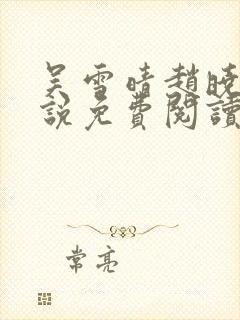 吴雪晴趙晓
說免費閱讀
常亮